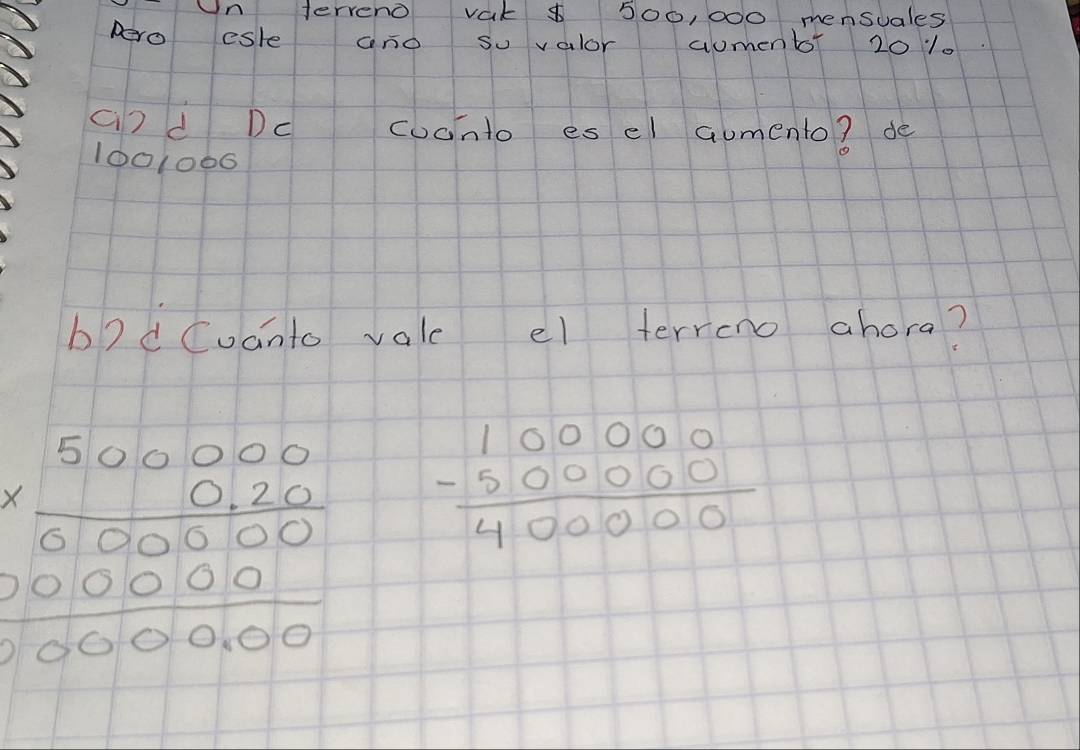 Un terreno vale $ 500,000 mensuales
Pero este año su valor aumentó 20%.
a) ¿ De cuánto es el aumento? de
100,000
b) ¿Cuánto vale el terreno ahora?
500000
x 0.20
000000
000000
0000.00
100000
- 500000
400000